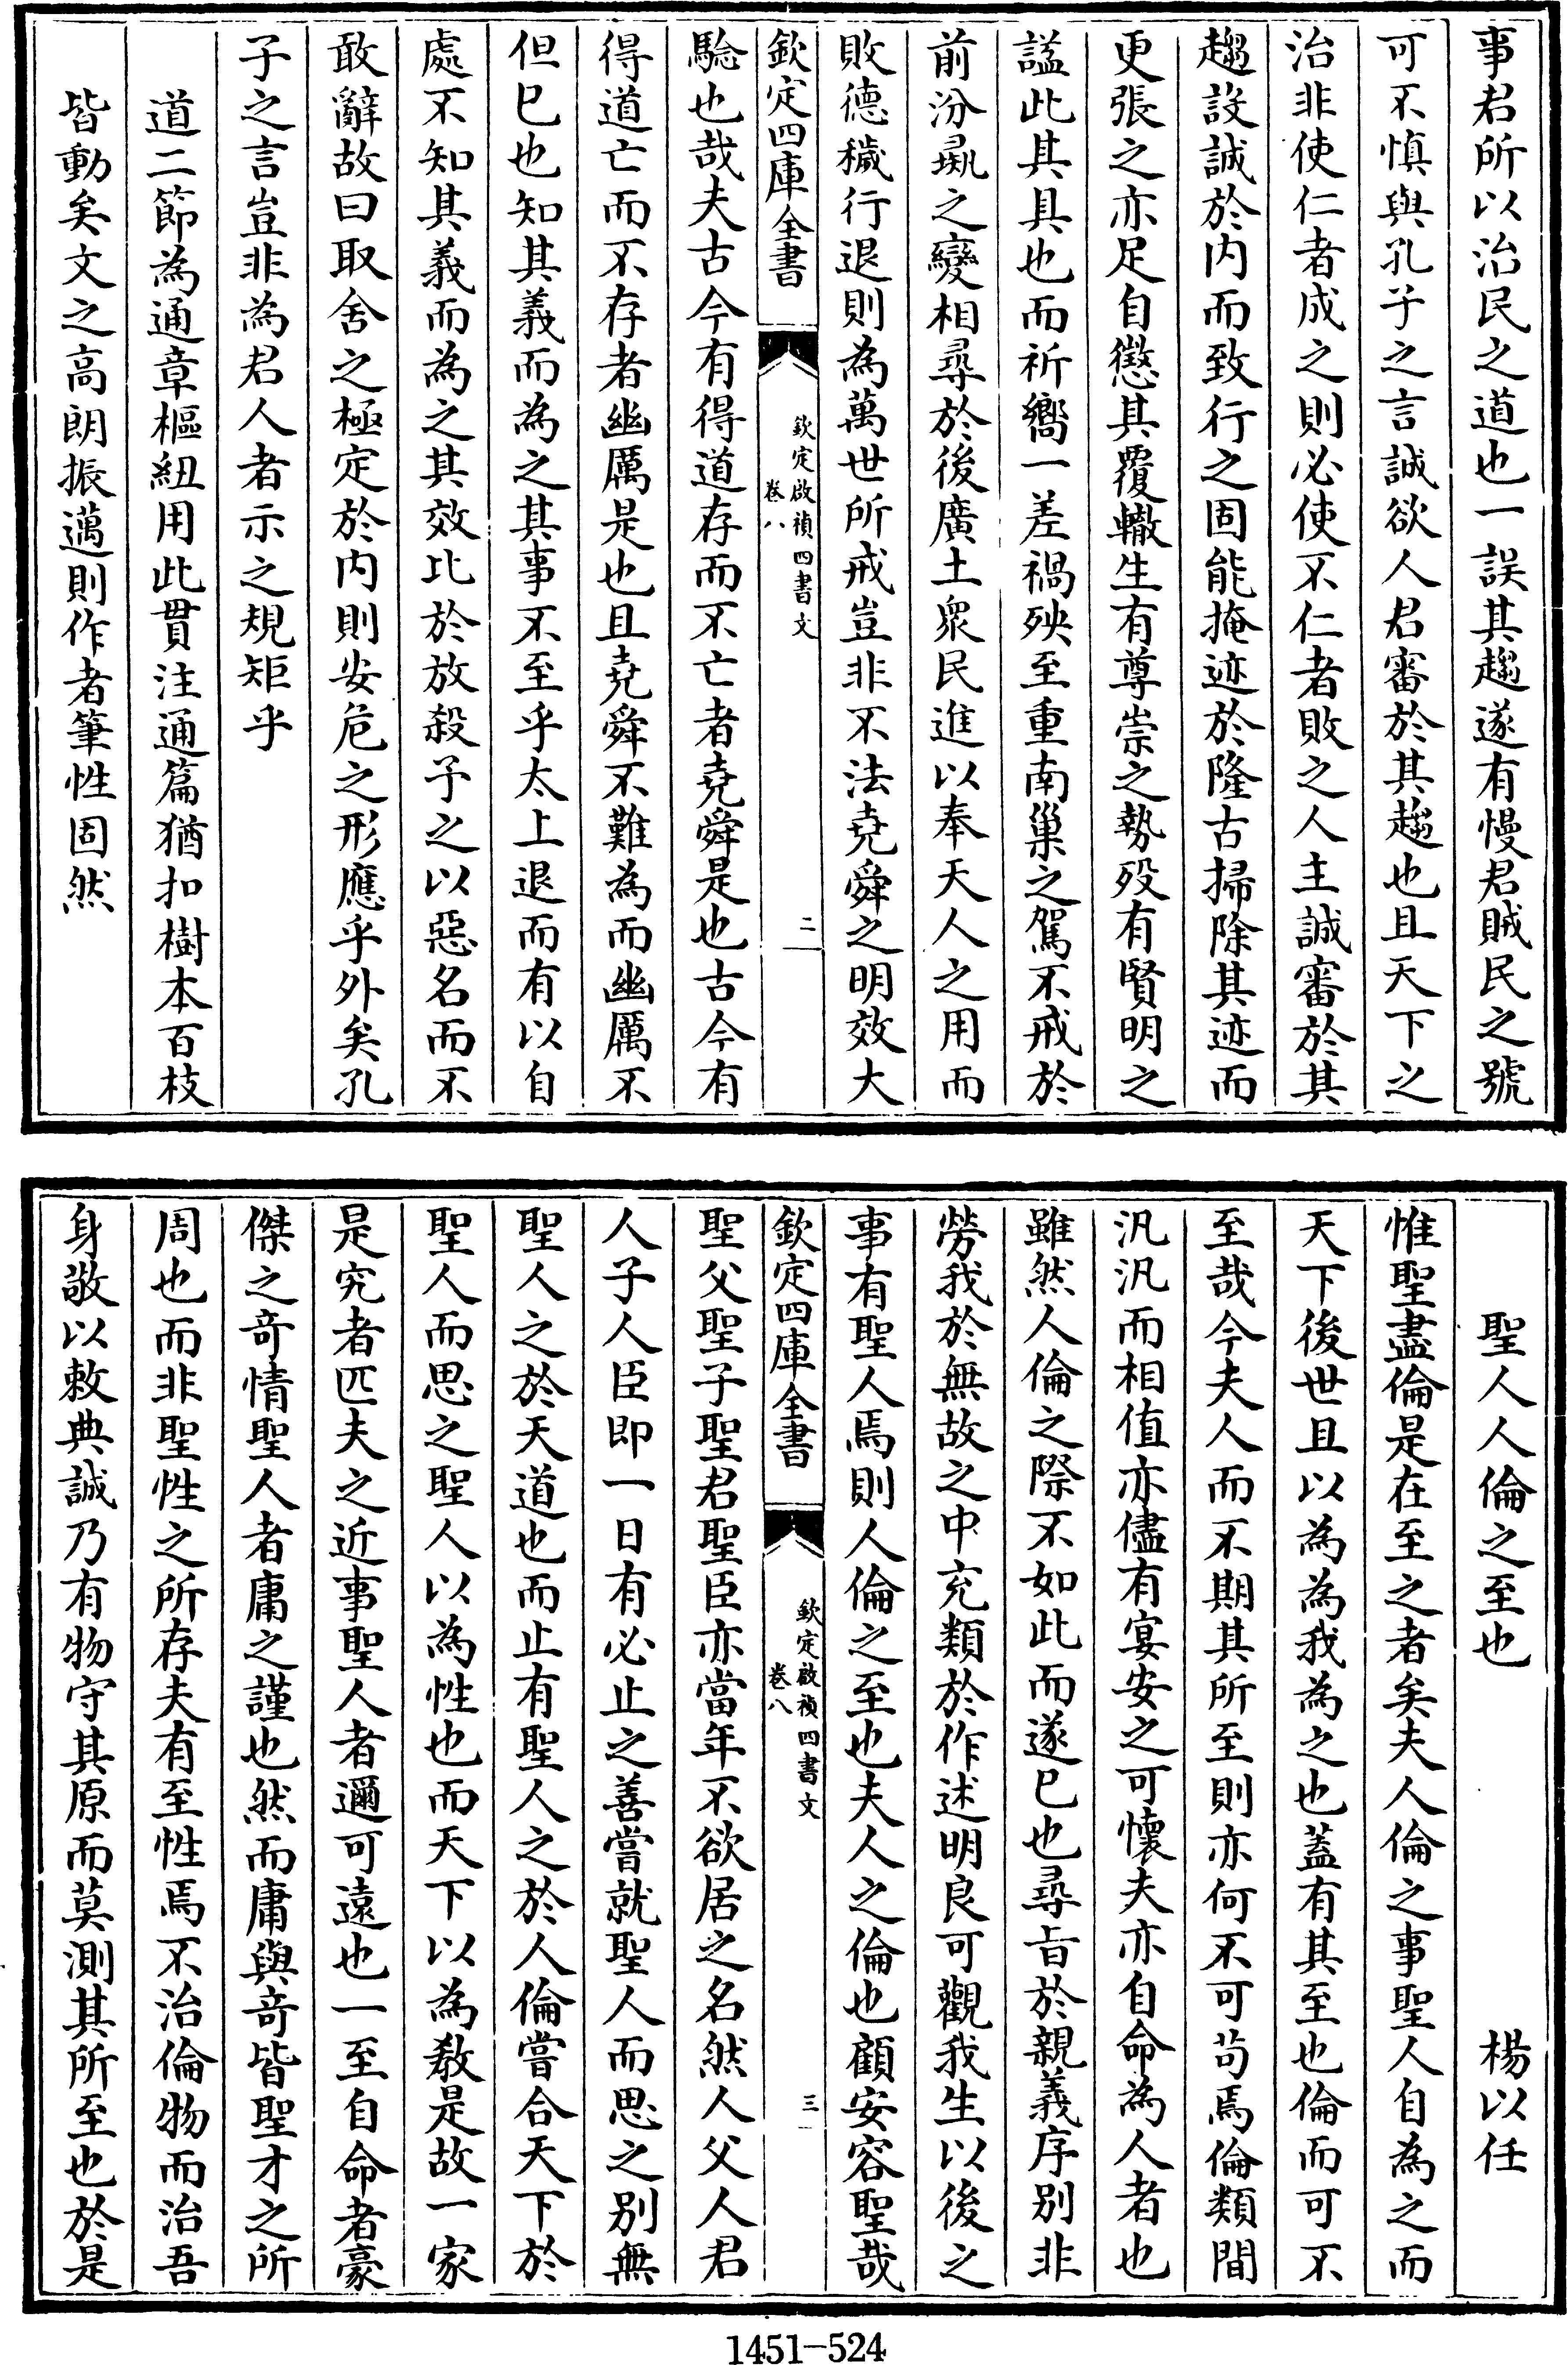 事君所以治民之道也一誤其趨遂有慢君賊民之號
可不慎與孔子之言誠欲人君審於其趨也且天下之
治非使仁者成之則必使不仁者敗之人主誠審於其
趨設誠於内而致行之固能掩迹於隆古掃除其迹而
更張之亦足自懲其覆轍生有尊崇之勢歿有賢明之
諡此其具也而祈嚮一差禍殃至重南巢之駕不戒於
前汾彘之變相尋於後廣土衆民進以奉天人之用而
敗德穢行退則為萬世所戒豈非不法堯舜之明效大
欽定四庫全書
欽定啟禎四書文
卷八
二
驗也哉夫古今有得道存而不亡者堯舜是也古今有
得道亡而不存者幽厲是也且堯舜不難為而幽厲不
但已也知其義而為之其事不至乎太上退而有以自
處不知其義而為之其效比於放殺予之以惡名而不
敢辭故曰取舍之極定於内則安危之形應乎外矣孔
子之言豈非為君人者示之規矩乎
道二節為通章樞紐用此貫注通篇猶扣樹本百枝
皆動矣文之高朗振邁則作者筆性固然
聖人人倫之至也 楊以任
惟聖盡倫是在至之者矣夫人倫之事聖人自為之而
天下後世且以為為我為之也蓋有其至也倫而可不
至哉今夫人而不期其所至則亦何不可苟焉倫類間
汎汎而相值亦儘有宴安之可懷夫亦自命為人者也
雖然人倫之際不如此而遂已也尋旨於親義序别非
勞我於無故之中充類於作述明良可觀我生以後之
事有聖人焉則人倫之至也夫人之倫也顧安容聖哉
欽定四庫全書
欽定啟禎四書文
卷八
三
聖父聖子聖君聖臣亦當年不欲居之名然人父人君
人子人臣即一日有必止之善嘗就聖人而思之别無
聖人之於天道也而止有聖人之於人倫嘗合天下於
聖人而思之聖人以為性也而天下以為教是故一家
是究者匹夫之近事聖人者邇可遠也一至自命者豪
傑之竒情聖人者庸之謹也然而庸與竒皆聖才之所
周也而非聖性之所存夫有至性焉不治倫物而治吾
身敬以敕典誠乃有物守其原而莫測其所至也於是
1451-524